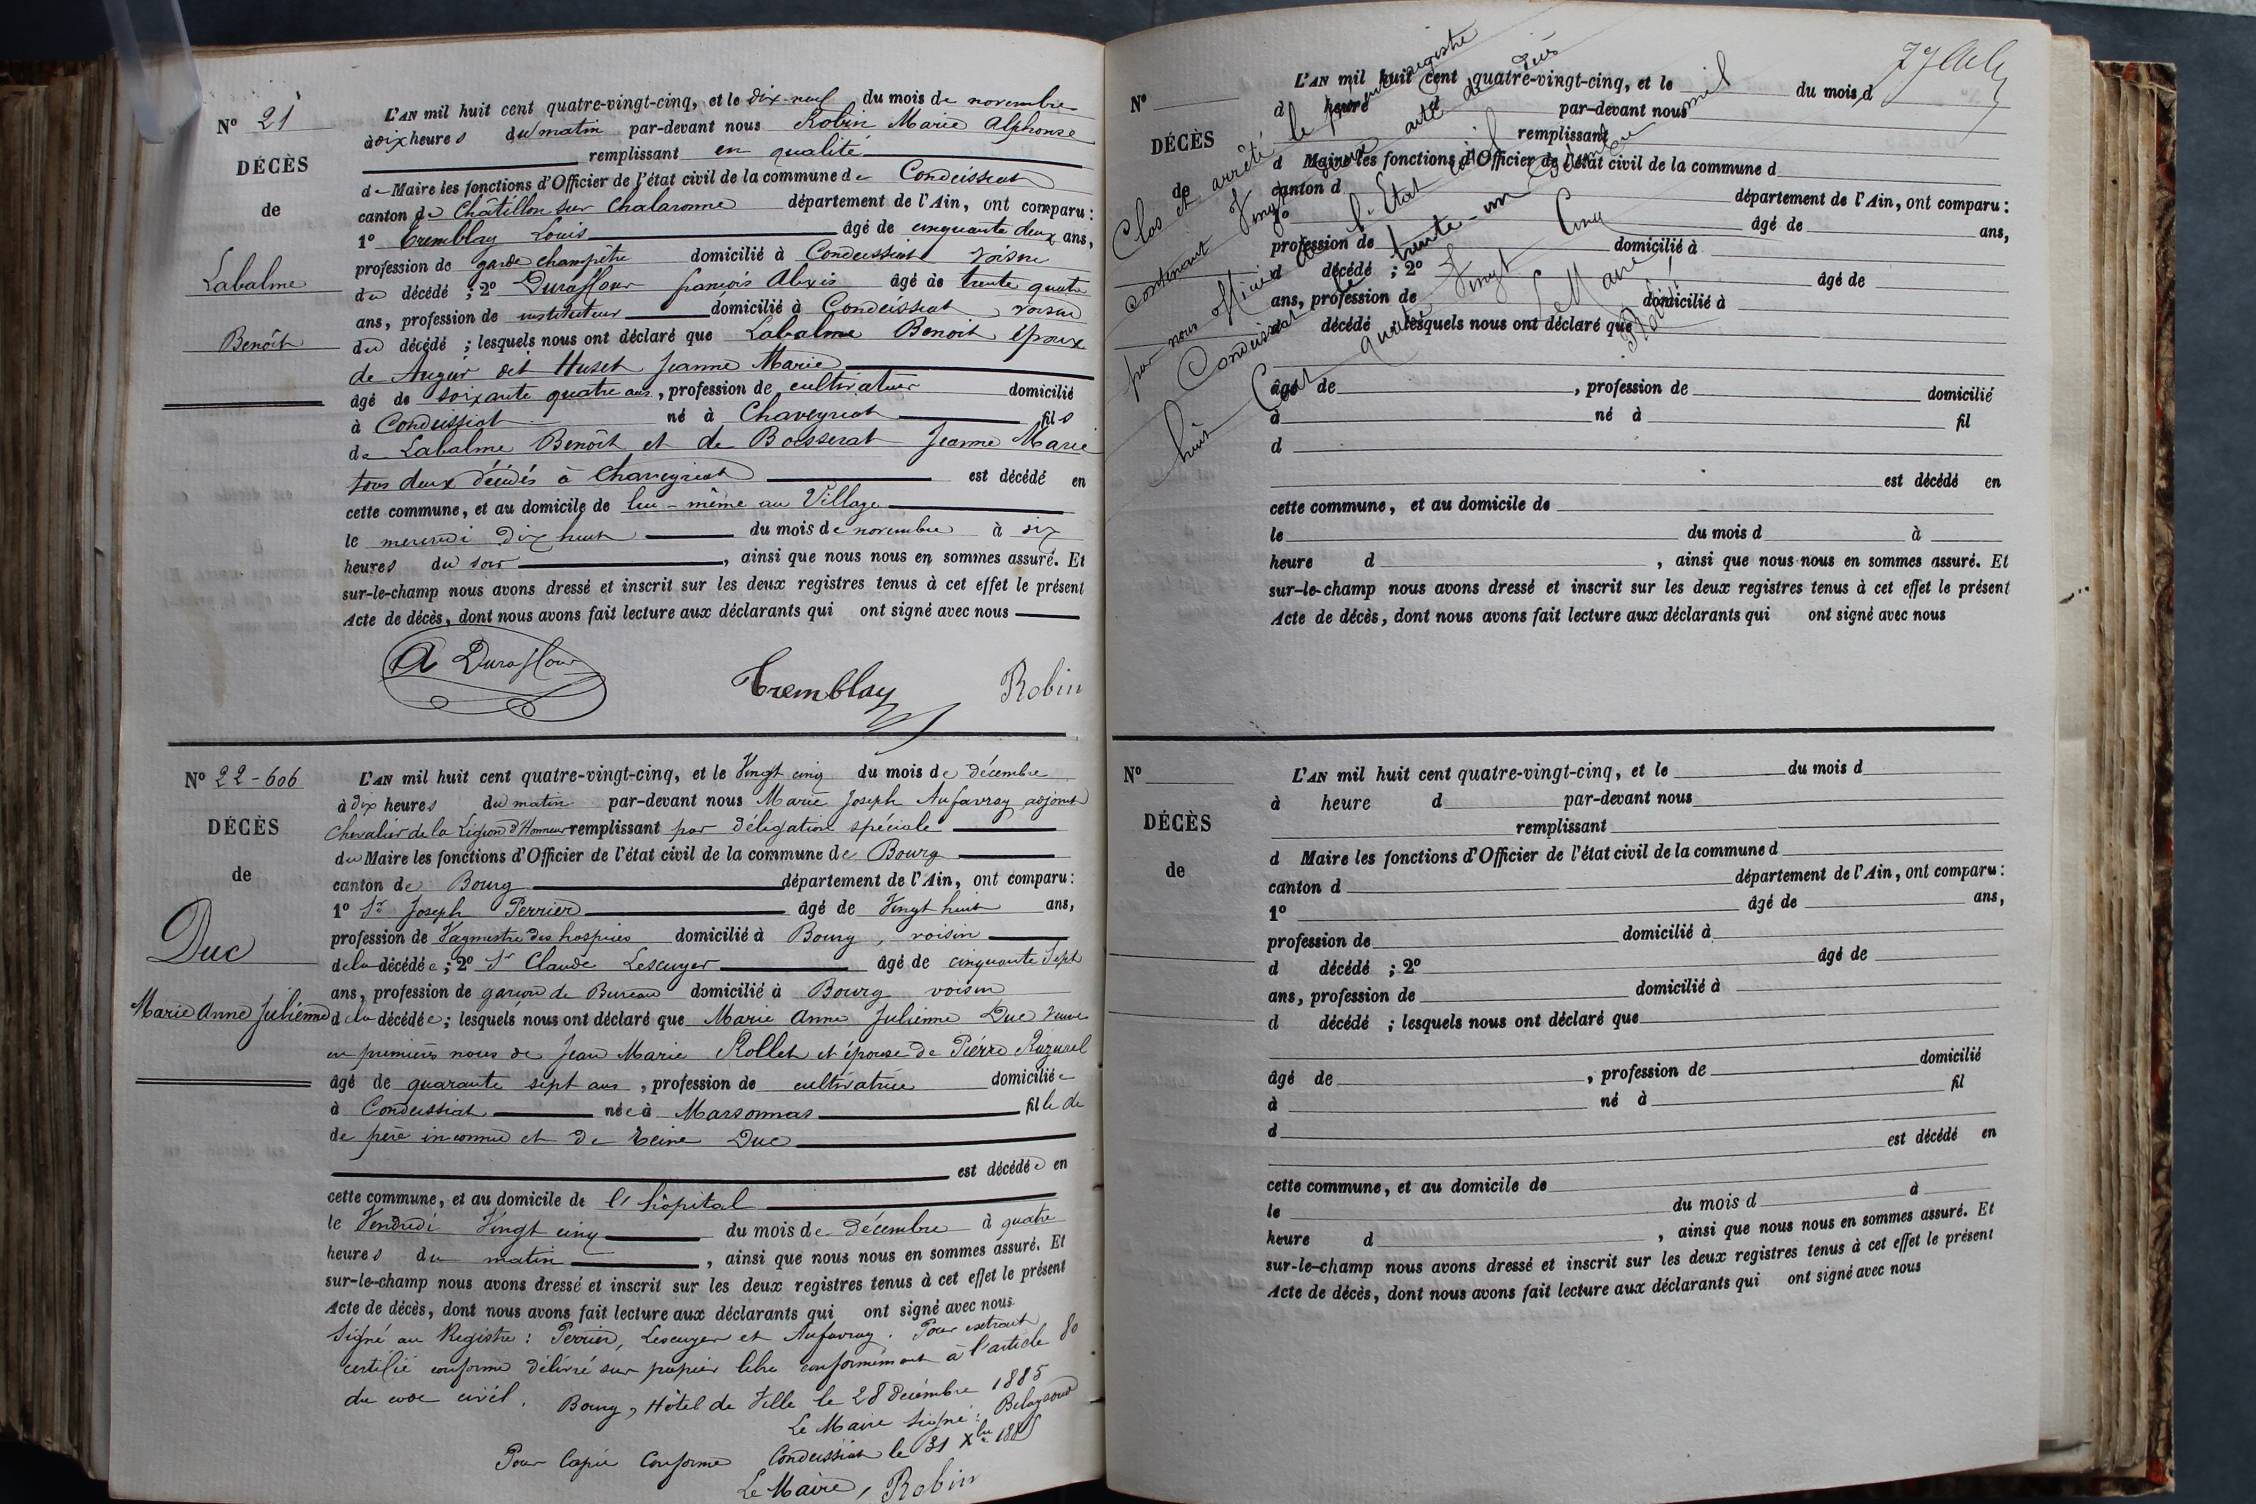 N° 21
DÉCÈS
de
Labalme
Benoît
L'AN mil huit cent quatre-vingt-cinq, et le dix-neuf du mois de novembre
à dix heures du matin par-devant nous Robin Marie Alphonse
remplissant en qualité
de Maire les fonctions d'Officier de l'état civil de la commune de Condeissiat
canton de Châtillon sur Chalaronne département de l'Ain, ont comparu :
1° Tremblay Louis âgé de cinquante deux ans,
profession de garde champêtre domicilié à Condeissiat voisin
du décédé ; 2° Duraflour françois Alexis âgé de trente quatre
ans, profession de instituteur domicilié à Condeissiat, voisin
du décédé ; lesquels nous ont déclaré que Labalme Benoit époux
de Augur dit Huset Jeanne Marie
âgé de soixante quatre ans, profession de cultivateur domicilié
à Condeissiat né à Chaveyriat fils
de Labalme Benoît et de Bosserat Jeanne Marie
tous deux décédés à Chaveyriat est décédé en
cette commune, et au domicile de lui-même au Village
le mercredi dix huit du mois de novembre à six
heures du soir, ainsi que nous nous en sommes assuré. Et
sur-le-champ nous avons dressé et inscrit sur les deux registres tenus à cet effet le présent
Acte de décès, dont nous avons fait lecture aux déclarants qui ont signé avec nous
A Duraflour Tremblay Robin
N° 22-606
DÉCÈS
de
Duc
Marie Anne Julienne
L'AN mil huit cent quatre-vingt-cinq, et le Vingt cinq du mois de décembre
à dix heures du matin par-devant nous Marie Joseph Aufavray adjoint
Chevalier de la Légion d'Honneur remplissant par délégation spéciale
du Maire les fonctions d'Officier de l'état civil de la commune de Bourg
canton de Bourg département de l'Ain, ont comparu :
1° Sr Joseph Perrier âgé de Vingt huit ans,
profession de Vagmestre des hospices domicilié à Bourg, voisin
de la décédée ; 2° Sr Claude Lescuyer âgé de cinquante Sept
ans, profession de garçon de Bureau domicilié à Bourg voisin
de la décédée ; lesquels nous ont déclaré que Marie Anne Julienne Duc veuve
en premières noces de Jean Marie Rollet et épouse de Pierre Ruzurel
âgé de quarante sept ans, profession de cultivatrice domiciliée
à Condeissiat née à Marsonnas fille de
de père inconnu et de Reine Duc
est décédée en
cette commune, et au domicile de l'hôpital
le Vendredi Vingt cinq du mois de décembre à quatre
heures du matin, ainsi que nous nous en sommes assuré. Et
sur-le-champ nous avons dressé et inscrit sur les deux registres tenus à cet effet le présent
Acte de décès, dont nous avons fait lecture aux déclarants qui ont signé avec nous
Signé au Registre : Perrier, Lescuyer et Aufavray. Pour extrait
certifié conforme délivré sur papier libre conformément à l'article 80
du code civil. Bourg, Hôtel de Ville le 28 décembre 1885
Le Maire Signé :
Pour Copie Conforme Condeissiat le 31 Xbre 1885
Le Maire, Robin
Clos et arrêté le présent registre
contenant Vingt deux actes de décès
par nous officier de l'Etat civil
Condeissiat le trente-un décembre mil
huit Cent quatre Vingt Cinq
Le Maire
Robin
N°
DÉCÈS
de
L'AN mil huit cent quatre-vingt-cinq, et le du mois d
d heure d par-devant nous
remplissant
d Maire les fonctions d'Officier de l'état civil de la commune d
canton d département de l'Ain, ont comparu :
1° âgé de ans,
profession de domicilié à
d décédé ; 2° âgé de
ans, profession de domicilié à
d décédé ; lesquels nous ont déclaré que
âgé de , profession de domicilié
à né à fil
d
est décédé en
cette commune, et au domicile de
le du mois d à
heure d , ainsi que nous nous en sommes assuré. Et
sur-le-champ nous avons dressé et inscrit sur les deux registres tenus à cet effet le présent
Acte de décès, dont nous avons fait lecture aux déclarants qui ont signé avec nous
N°
DÉCÈS
de
L'AN mil huit cent quatre-vingt-cinq, et le du mois d
à heure d par-devant nous
remplissant
d Maire les fonctions d'Officier de l'état civil de la commune d
canton d département de l'Ain, ont comparu :
1° âgé de ans,
profession de domicilié à
d décédé ; 2° âgé de
ans, profession de domicilié à
d décédé ; lesquels nous ont déclaré que
âgé de , profession de domicilié
à né à fil
d
est décédé en
cette commune, et au domicile de
le du mois d à
heure d , ainsi que nous nous en sommes assuré. Et
sur-le-champ nous avons dressé et inscrit sur les deux registres tenus à cet effet le présent
Acte de décès, dont nous avons fait lecture aux déclarants qui ont signé avec nous